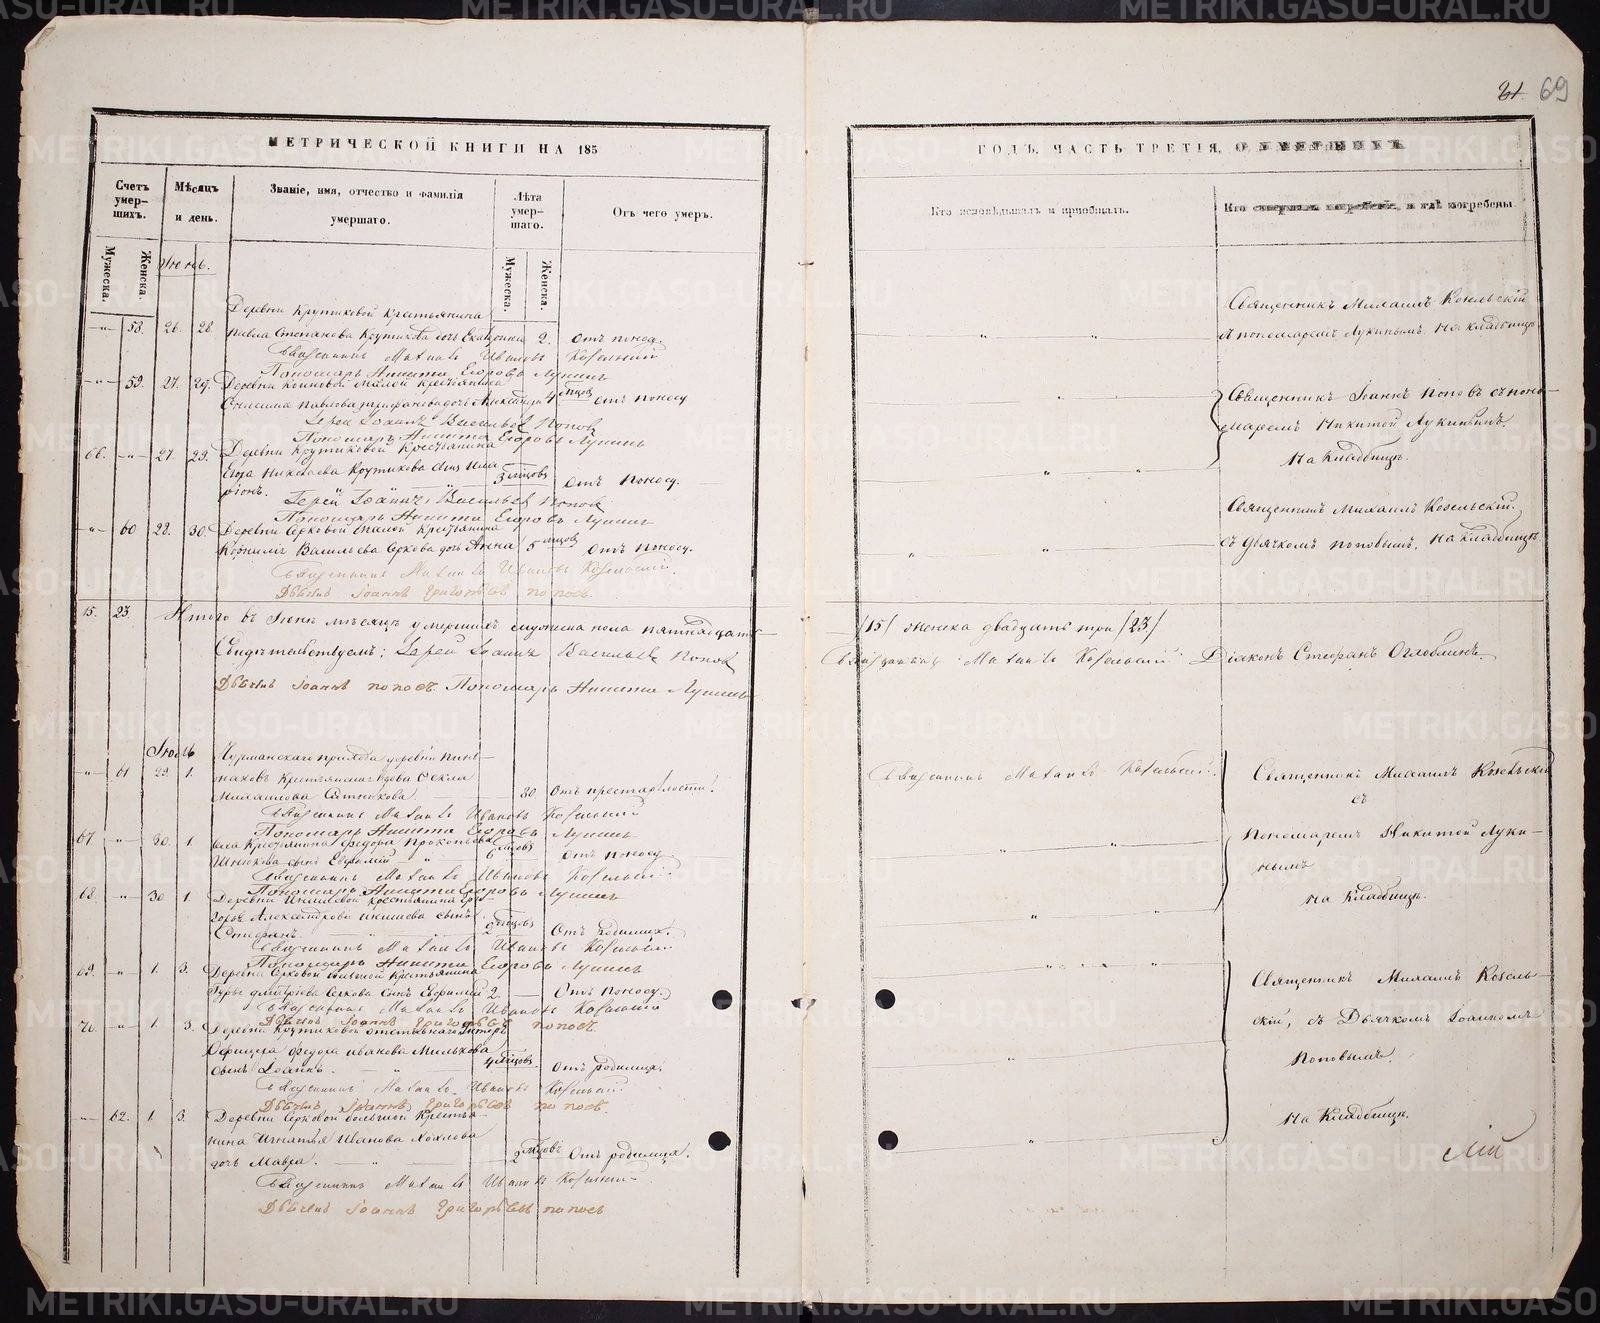 21 69
МЕТРИЧЕСКОЙ КНИГИ НА 185
Счетъ умер-шихъ.
Мѣсяцъ и день.
Званіе, имя, отчество и фамилія умершаго.
Лѣта умер-шаго.
Отъ чего умеръ.
Мужеска.
Женска.
Мужеска.
Женска.
Іюнь.
Деревни Крутиковой Крестьянина
58. 26. 28. Павла Степанова Крутикова дочь Екатерина 2. Отъ поноса.
Священникъ Михаилъ Ивановъ Козельский
Пономарь Никита Егоровъ Лукинъ
59. 27. 29. Деревни Коиновой малой Крестьянина
дочь Александра 4 мѣсяцов Отъ поносу
Іерей Іоаннъ Васильевъ Попов
Пономарь Никита Егоровъ Лукинъ
66. 27. 29. Деревни Крутиковой Крестьянина
Егора Николаева Крутикова сынъ Ила-
ріонъ. 3 мѣсяцовъ Отъ поносу.
Іерей Іоаннъ Васильевъ Попов
Пономарь Никита Егоровъ Лукинъ
60 28. 30. Деревни Серковой малой Крестьянина
Корнила Васильева Серкова дочь Анна 5 мѣсяцов Отъ поносу.
Священникъ Михаилъ Ивановъ Козельский.
Дьячекъ Іоаннъ Григорьевъ Поповъ
15. 23. Итого въ Іюнѣ мѣсяцѣ умершихъ мужеска пола пятнадцать
Свидѣтельствуемъ: Іерей Іоаннъ Васильевъ Попов
Дьячекъ Іоаннъ Поповъ Пономарь Никита Лукинъ
Іюль
61 29. 1. прихода деревни
Крестьянская вдова Фекла
Михаилова 80 Отъ престарлости.
Священникъ Михаилъ Ивановъ Козельский
Пономарь Никита Егоровъ Лукинъ
67 30. 1. села Крестьянина Федора Прокопьева
сынъ Евфимій 6 мѣсяцовъ Отъ поносу.
Священникъ Михаилъ Ивановъ Козельский
Пономарь Никита Егоровъ Лукинъ
68. 30 1. Деревни Икишевой Крестьянина Гри-
горья Александрова Икишева сынъ
Стефанъ 2 мѣсяцовъ Отъ родимца.
Священникъ Михаилъ Ивановъ Козельский
Пономарь Никита Егоровъ Лукинъ
69. 1. 3. Деревни Серковой большой Крестьянина
Гурья Дмитріева Серкова сынъ Евфимій 2. Отъ поносу.
Священникъ Михаилъ Ивановъ Козельский
Дьячекъ Іоаннъ Григорьевъ Поповъ
70. 1. 3. Деревни Крутиковой отставнаго Унтеръ
Офицера Федора Иванова Милькова
сынъ Іоаннъ 4 мѣсяцовъ Отъ родимца.
Священникъ Михаилъ Ивановъ Козельский
Дьячекъ Іоаннъ Григорьевъ Поповъ.
62. 1. 3. Деревни Серковой большой Крестья-
нина Игнатья Иванова Хохлова
дочь Мавра. 2 мѣсяцовъ Отъ родимца.
Священникъ Михаилъ Ивановъ Козельский
Дьячекъ Іоаннъ Григорьевъ Поповъ
ГОДЪ, ЧАСТЬ ТРЕТІЯ, О УМЕРШИХЪ
Кто исповѣдывалъ и пріобщалъ.
Кто совершалъ погребеніе, и гдѣ погребены
Священникъ Михаилъ Козельскій
съ пономаремъ Лукинымъ. На кладбищѣ.
Священникъ Іоаннъ Поповъ съ поно-
маремъ Никитой Лукинымъ.
На кладбищѣ.
Священникъ Михаилъ Козельскій.
съ дьячкомъ Поповымъ, на кладбищѣ.
/15/ женска двадцать три /23/
Священникъ Михаилъ Козельский Діаконъ Стефанъ Оглоблинъ.
Священникъ Михаилъ Козельский. Священникъ Михаилъ Козельскій
съ
Пономаремъ Никитой Луки-
нымъ
На кладбищѣ.
Священникъ Михаилъ Козель-
скій, съ Дьячкомъ Іоанномъ
Поповымъ.
На кладбищѣ.
METRIKI.GASO-URAL.RU